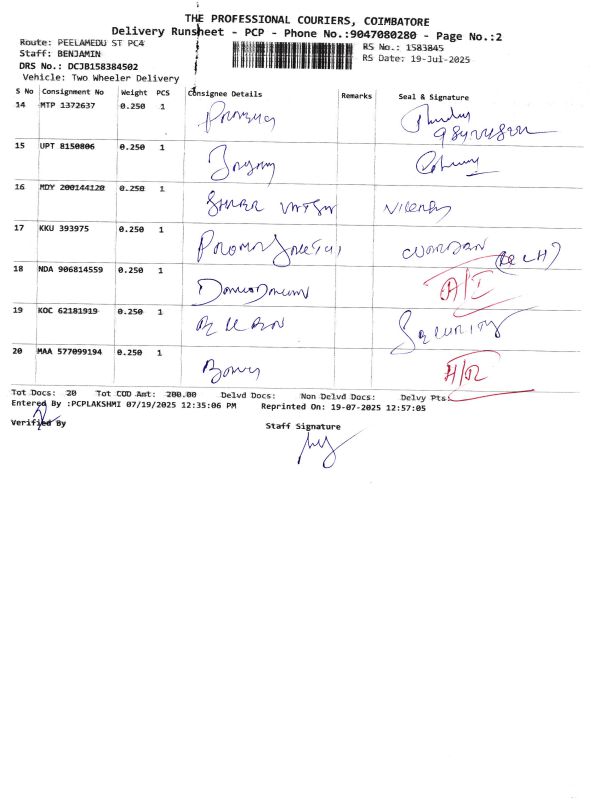 THE PROFESSIONAL COURIERS, COIMBATORE
Delivery Runsheet - PCP - Phone No.:9047080280 - Page No.:2
Route: PEELAMEDU ST PC4
Staff: BENJAMIN
DRS No.: DCJB158384502
Vehicle: Two Wheeler Delivery
RS No.: 1583845
RS Date: 19-Jul-2025
S No Consignment No Weight PCS Consignee Details Remarks Seal & Signature
14 MTP 1372637 0.250 1
15 UPT 8150806 0.250 1
16 MDY 200144120 0.250 1
17 KKU 393975 0.250 1
18 NDA 906814559 0.250 1 A/I
19 KOC 62181919 0.250 1 Security
20 MAA 577099194 0.250 1
Tot Docs: 20 Tot COD Amt: 200.00 Delvd Docs: Non Delvd Docs: Delvy Pts:
Entered By :PCPLAKSHMI 07/19/2025 12:35:06 PM Reprinted On: 19-07-2025 12:57:05
Verified By
Staff Signature